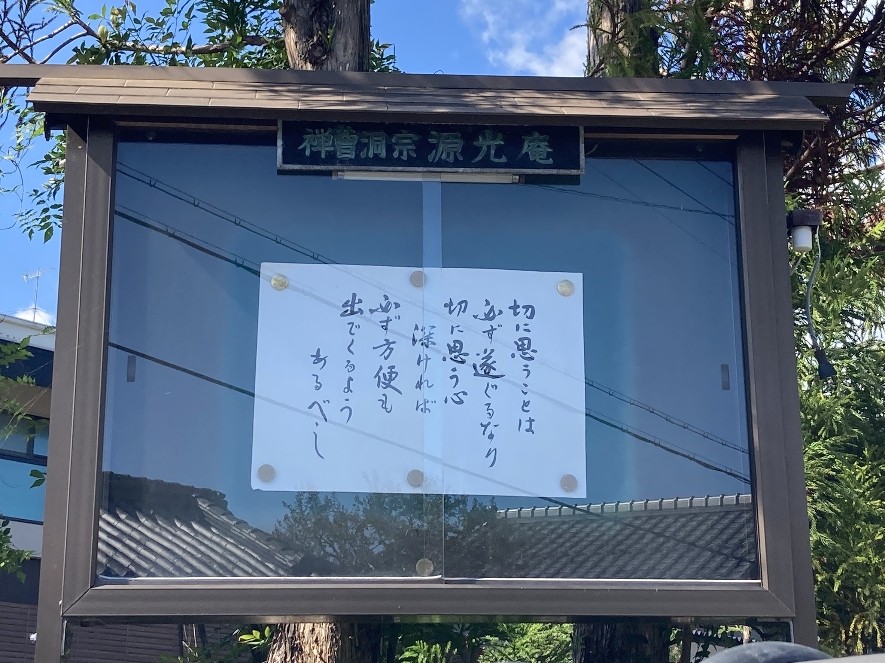 禅曹洞宗源光庵
切に思うことは
必ず遂ぐるなり
切に思う心
深ければ
必ず方便も
出でくるよう
あるべし